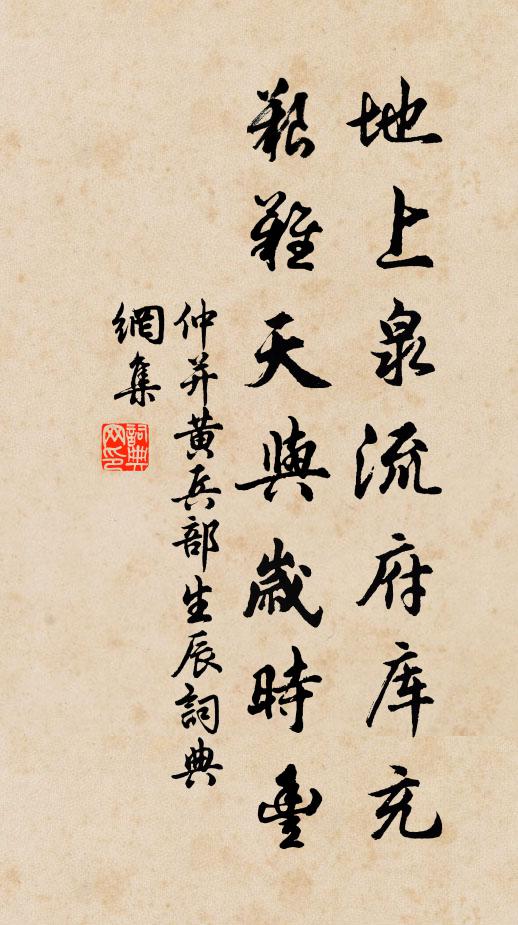 地上泉流府库充
艱難天與歲時豐
仲并黄兵部生辰詞典
網集
詞典
网印